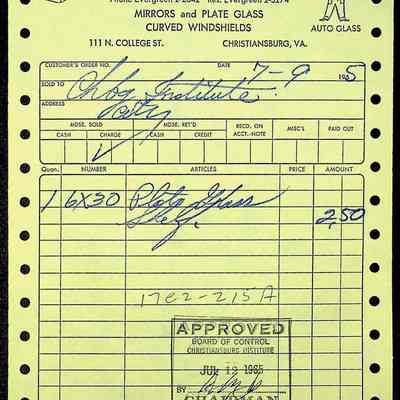 Phone Evergreen 2-2642 Res. Evergreen 2-3274
MIRRORS and PLATE GLASS
CURVED WINDSHIELDS
AUTO GLASS
111 N. COLLEGE ST. CHRISTIANSBURG, VA.
CUSTOMER'S ORDER NO. DATE 7-9 1965
SOLD TO Chbg Institute
ADDRESS City
MDSE. SOLD MDSE. RET'D RECD. ON ACCT.-NOTE MISC'L PAID OUT
CASH CHARGE CASH CREDIT
Quan. NUMBER ARTICLES PRICE AMOUNT
1 6X30 Plate Glass
Shelf. 2,50
17e2-215A
APPROVED
BOARD OF CONTROL
CHRISTIANSBURG INSTITUTE
JUL 12 1965
BY
CHAIRMAN